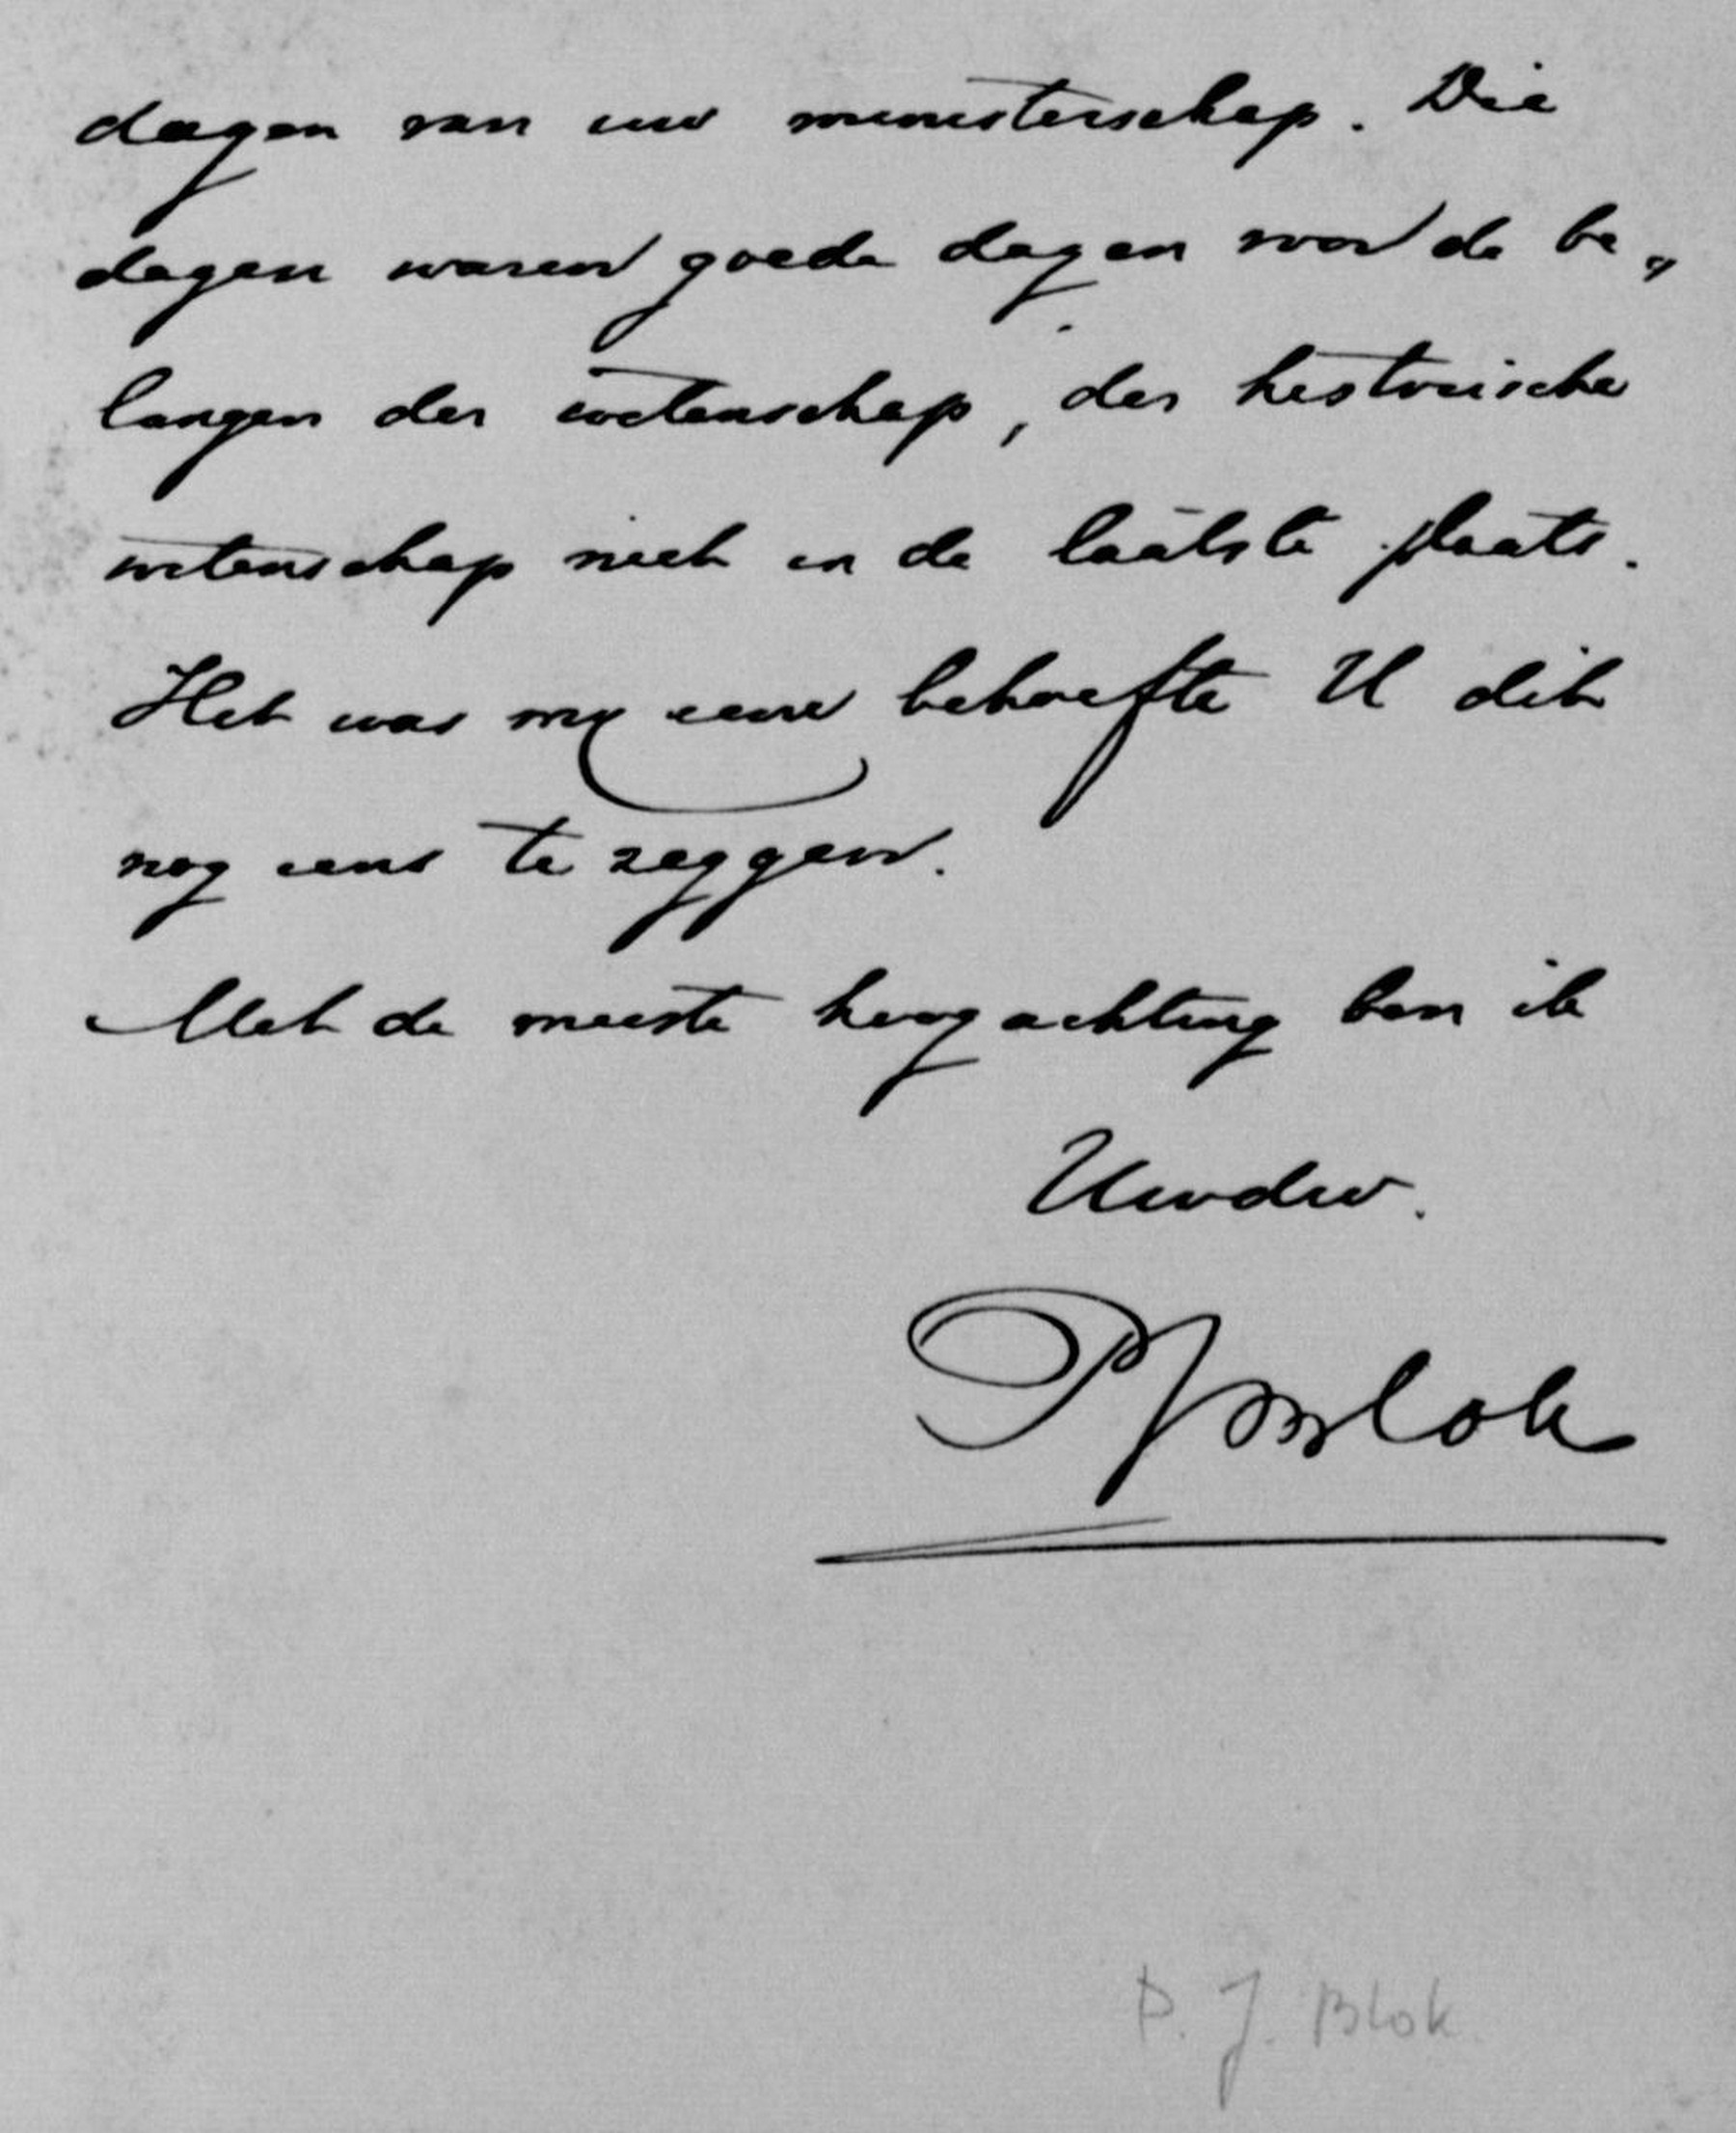 dagen van uw ministerschap. Die
dagen waren goede dagen voor de be„
langen der wetenschap, der historische
wetenschap niet in de laatste plaats.
Het was mij eene behoefte U dit
nog eens te zeggen.
Met de meeste hoogachting ben ik
Uwdw.
PJBlok
P. J. Blok